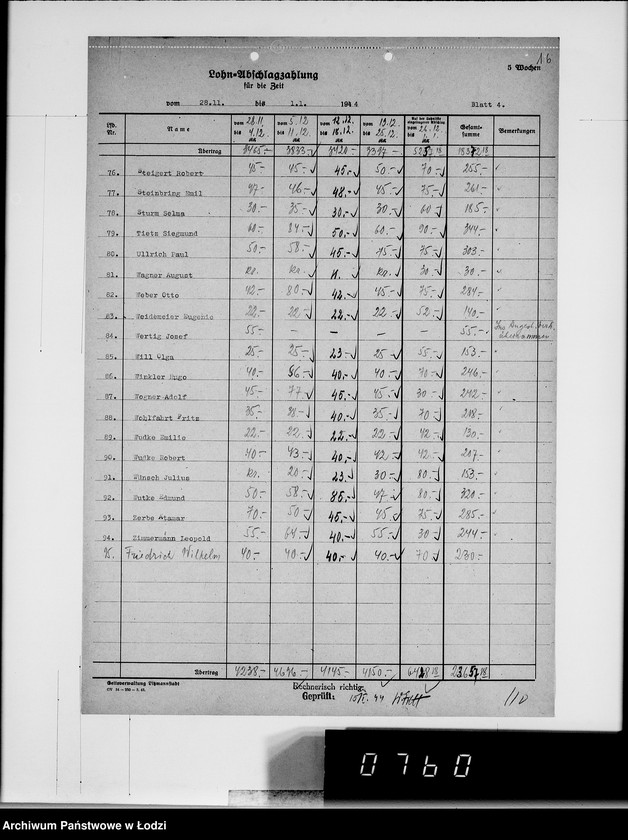 16
5 Wochen
Lohn-Abschlagzahlung
für die Zeit
vom 28.11. bis 1.1. 1944 Blatt 4.
Lfd. Nr. Name vom 28.11 bis 4.12. vom 5.12 bis 11.12. vom 12.12. bis 18.12. vom 19.12. bis 25.12. bis 1.1. Gesamt-summe Bemerkungen
Übertrag 3420.-
76. Steigert Robert 45.- 45.- 45.- 50.- 70.- 255.-
77. Steinbring Emil 47.- 46.- 48.- 45.- 75.- 261.-
78. Sturm Selma 30.- 35.- 30.- 30.- 60 185.-
79. Tietz Siegmund 60.- 84.- 50.- 60.- 90.- 344.-
80. Ullrich Paul 50.- 58.- 45.- 75.- 303.-
81. Wagner August kr. kr. kr. 30.- 30.-
82. Weber Otto 42.- 80.- 42.- 45.- 75.- 284.-
83. Weidemeier Eugenie 22.- 22 22.- 22 52.- 140.-
84. Wertig Josef 55.- – – – – 55.-
85. Will Olga 25.- 25.- 23.- 25 55.- 153.-
86. Winkler Hugo 40.- 40.- 40 70 246.-
87. Wegner Adolf 45.- 77 45.- 45.- 30 242.-
88. Wohlfahrt Fritz 35.- 28.- 40.- 35.- 70 208.-
89. Wudke Emilie 22.- 22.- 22.- 22 42.- 130.-
90. Wudke Robert 40.- 43.- 40.- 42 42.- 207.-
91. Wünsch Julius kr. 20.- 23.- 30 80.- 153.-
92. Wutke Edmund 50.- 58.- 85.- 47 80.- 320.-
93. Zerbe Atamar 70.- 50 45.- 45 75.- 285.-
94. Zimmermann Leopold 55.- 64.- 40.- 55.- 30 244.-
95. Friedrich Wilhelm 40.- 40.- 40.- 40.- 70 230.-
Übertrag 4238.- 4676.- 4145.- 4150.- 6448.18 23657.18
Gettoverwaltung Litzmannstadt
Rechnerisch richtig
Geprüft:
110
0760
Archiwum Państwowe w Łodzi